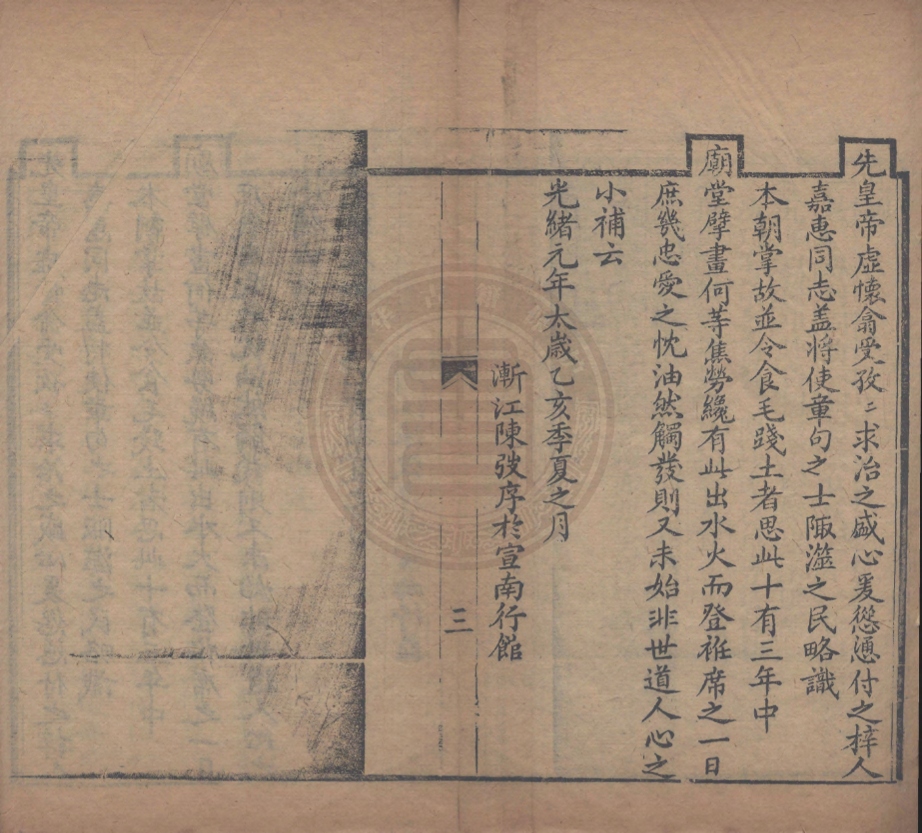 先皇帝虛懷翕受孜〻求治之盛心爰慫慂付之梓人
嘉惠同志盖將使章句之士陬澨之民略識
本朝掌故並令食毛踐土者思此十有三年中
廟堂擘畫何等焦勞纔有此出水火而登袵席之一日
庶幾忠愛之忱油然觸發則又未始非世道人心之
小補云
光緒元年太歲乙亥季夏之月
漸江陳弢序於宣南行館
三